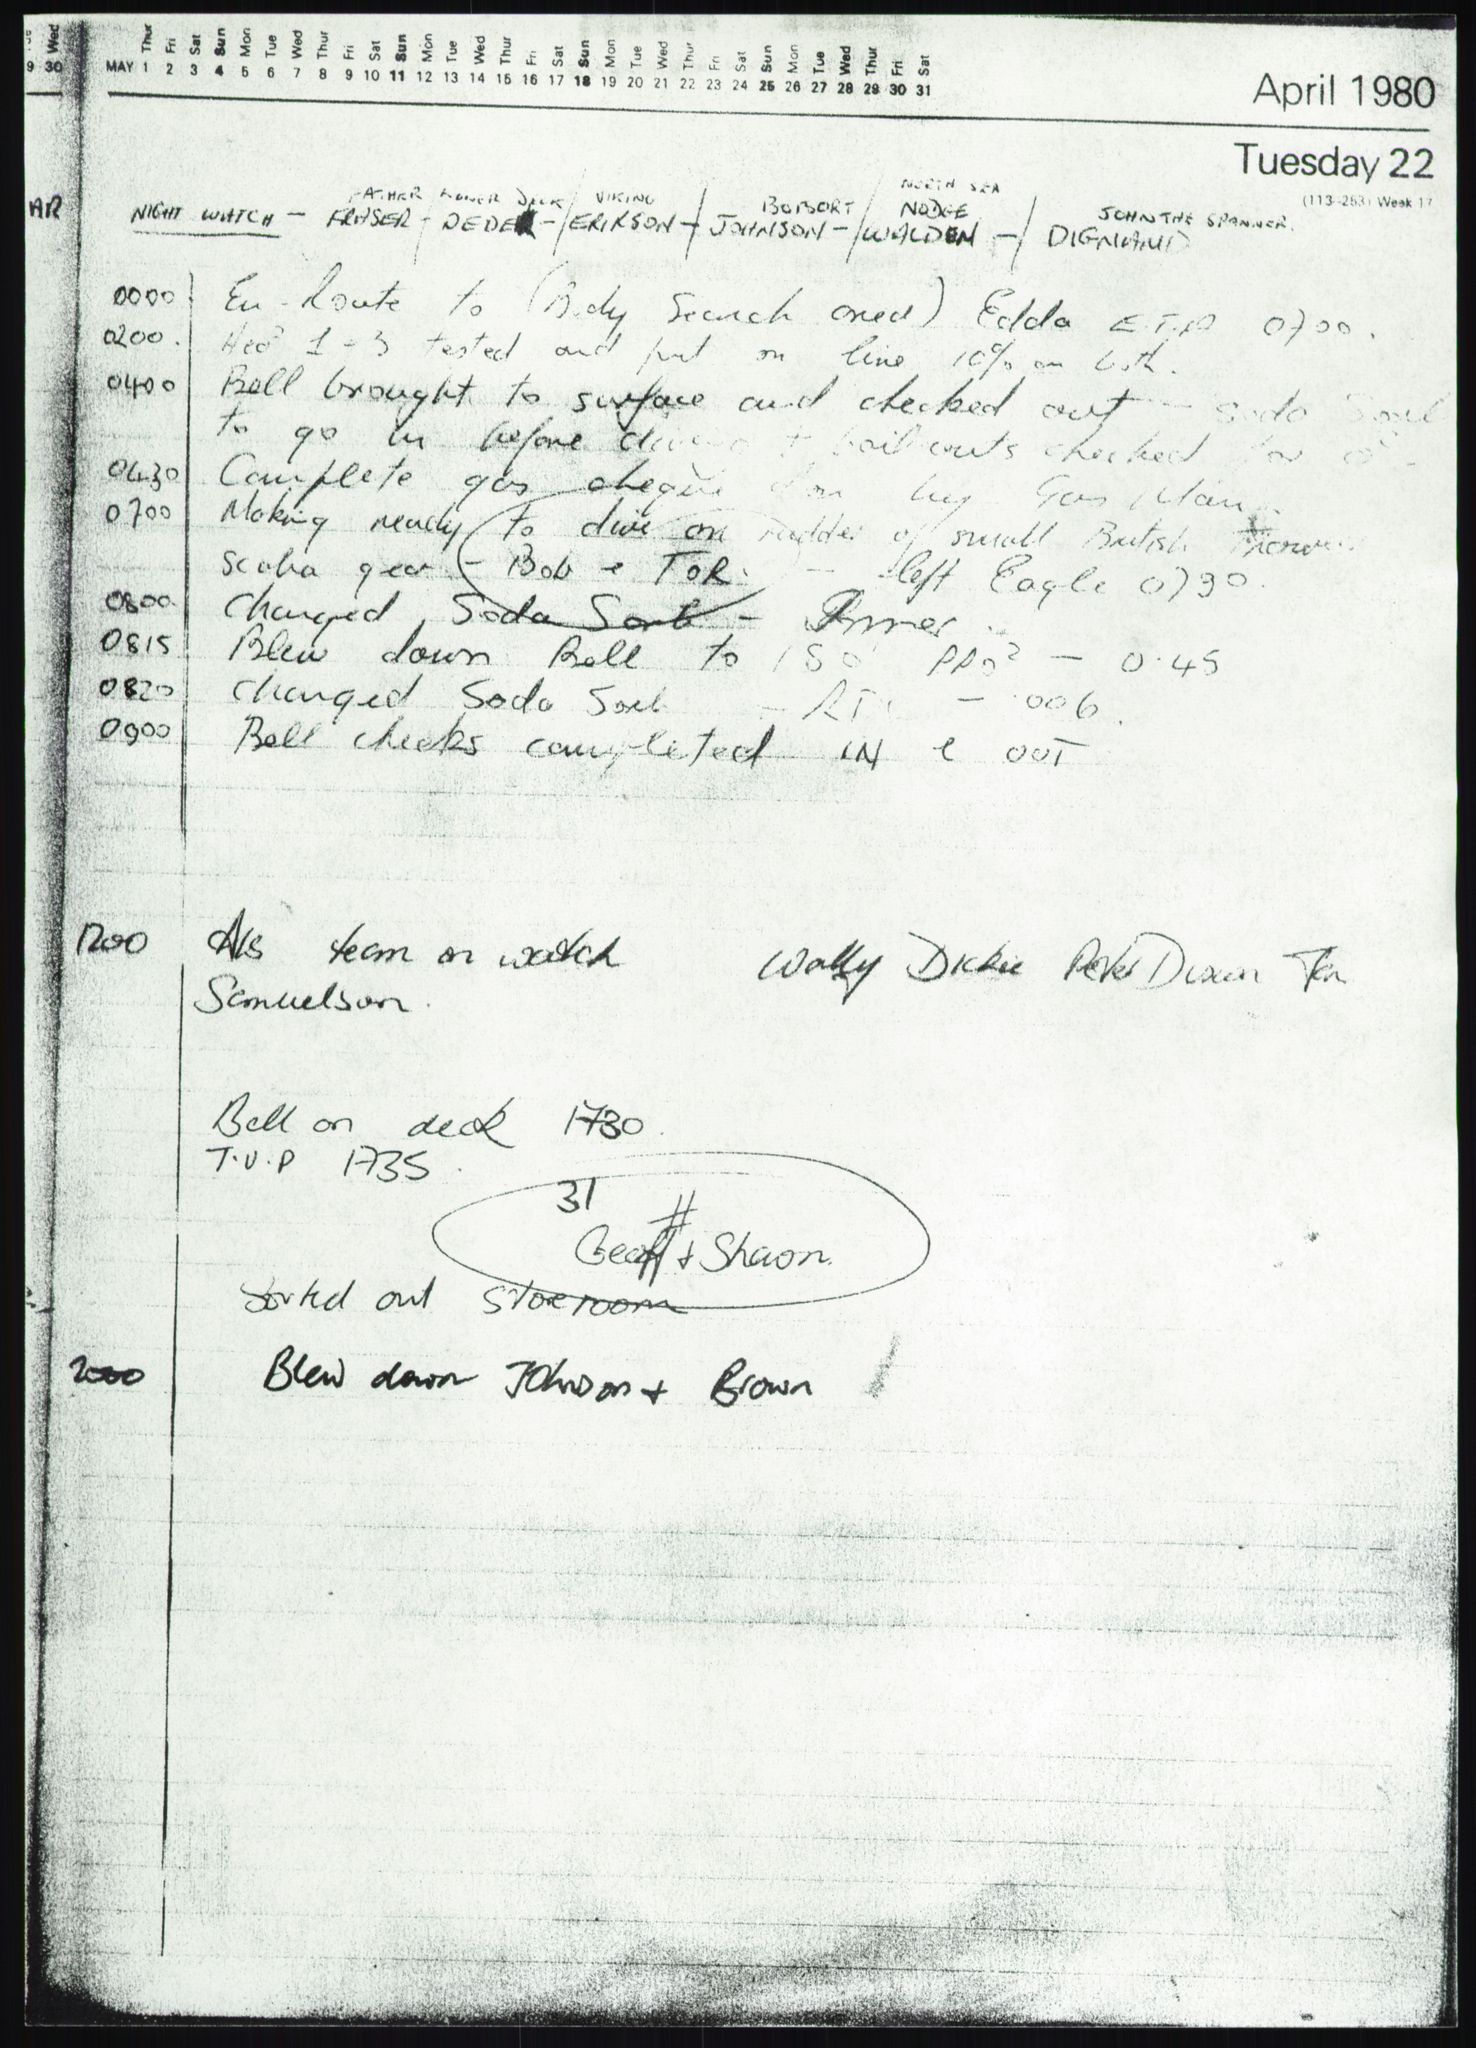 Wed Thur Fri Sat Sun Mon Tue Wed Thur Fri Sat Sun Mon Tue Wed Thur Fri Sat Sun Mon Tue Wed Thur Fri Sat Sun Mon Tue Wed Thur Fri Sat
9 30 MAY 1 2 3 4 5 6 7 8 9 10 11 12 13 14 15 16 17 18 19 20 21 22 23 24 25 26 27 28 29 30 31
April 1980
Tuesday 22
(113-253) Week 17
FATHER DECK VIKING BOBORT NORTH SEA JOHN THE SPANNER.
AR NIGHT WATCH - FRASER - DEDEK - / ERIKSON - / JOHNSON - / NODGE WALDEN - / DIGNAND
0000 En-Route to (Body Search area) Edda E.T.A 0700.
0200. 1-3 tested and put on line 10% on both.
0400 Bell brought to surface and checked out - Soda Sorb
to go in before + bail outs checked for
0430 Complete gas by Gas Man.
0700 Making ready to dive on rudder of small British
scuba gear - Bob & TOR. - left Eagle 0730.
0800. Changed Soda Sorb -
0815 Blew down Bell to 150' PPO2 - 0.45
0820 Changed Soda Sorb - - .006.
0900 Bell checks completed IN & OUT
1200 Als team on watch Wally Dickie Peter Dixon
Samuelson.
Bell on deck 1730.
T.U.P 1735.
31
Geoff + Sharon.
Sorted out storeroom
2000 Blew down Johnson + Brown